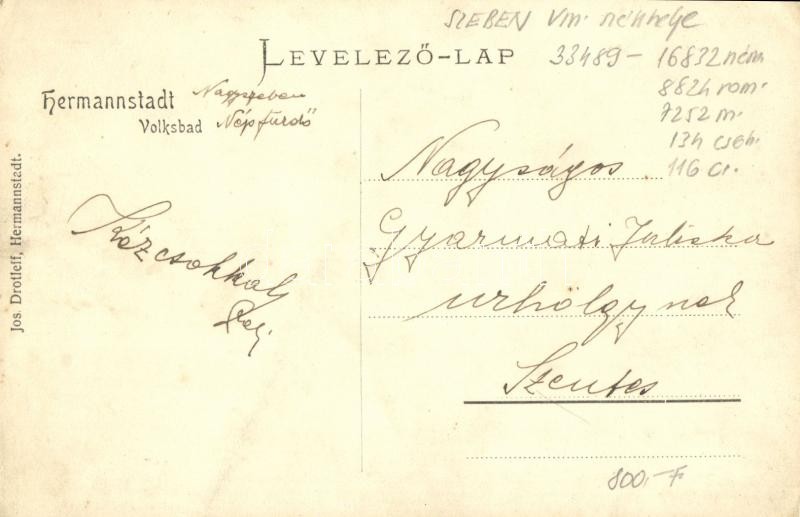 SZEBEN Vm. székhelye
LEVELEZŐ-LAP
33489 – 16832 ném.
8824 rom.
7252 m.
134 cseh.
116 ci.
Hermannstadt Nagyszeben
Volksbad Népfürdő
Jos. Drotleff, Hermannstadt.
Kézcsókkal
Nagyságos
Gyarmati Juliska
urhölgynek
Szentes
800.-F